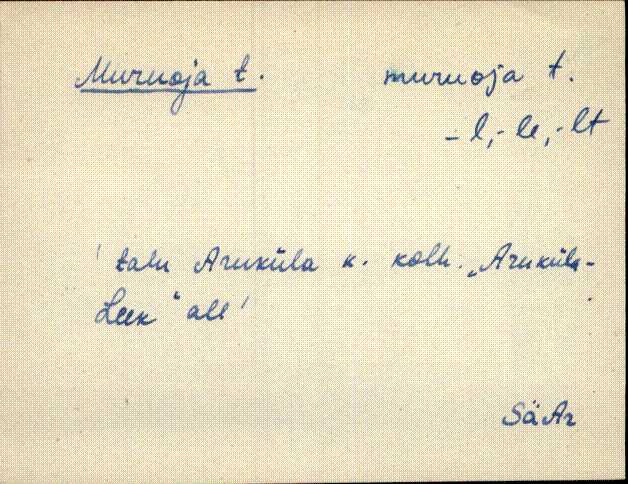 Muruoja t. muruoja t.
-l, -le, -lt
' talu Aruküla k. kolh. „Aruküla-
Leek" all'
SäAr